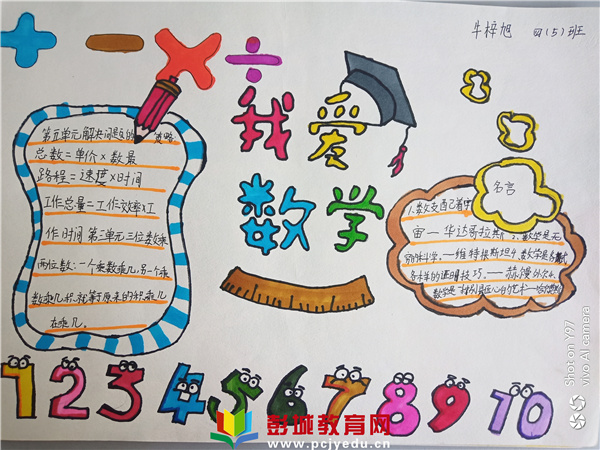 牛梓旭 四(5)班
+ - × ÷
我爱
数学
第五单元解决问题的策略
总数=单价×数量
路程=速度×时间
工作总量=工作效率×工
作时间 第三单元三位数乘
两位数:一个乘数乘几,另一个乘
数乘几积就等于原来的积乘几
在乘几。
名言
1.数支配着宇
宙—毕达哥拉斯 2.数学是无
穷的科学。——维特根斯坦 4.数学是各式
各样的证明技巧。——
数学是
1 2 3 4 5 6 7 8 9 10
彭城教育网
www.pcjyedu.cn
Shot on Y97
vivo AI camera